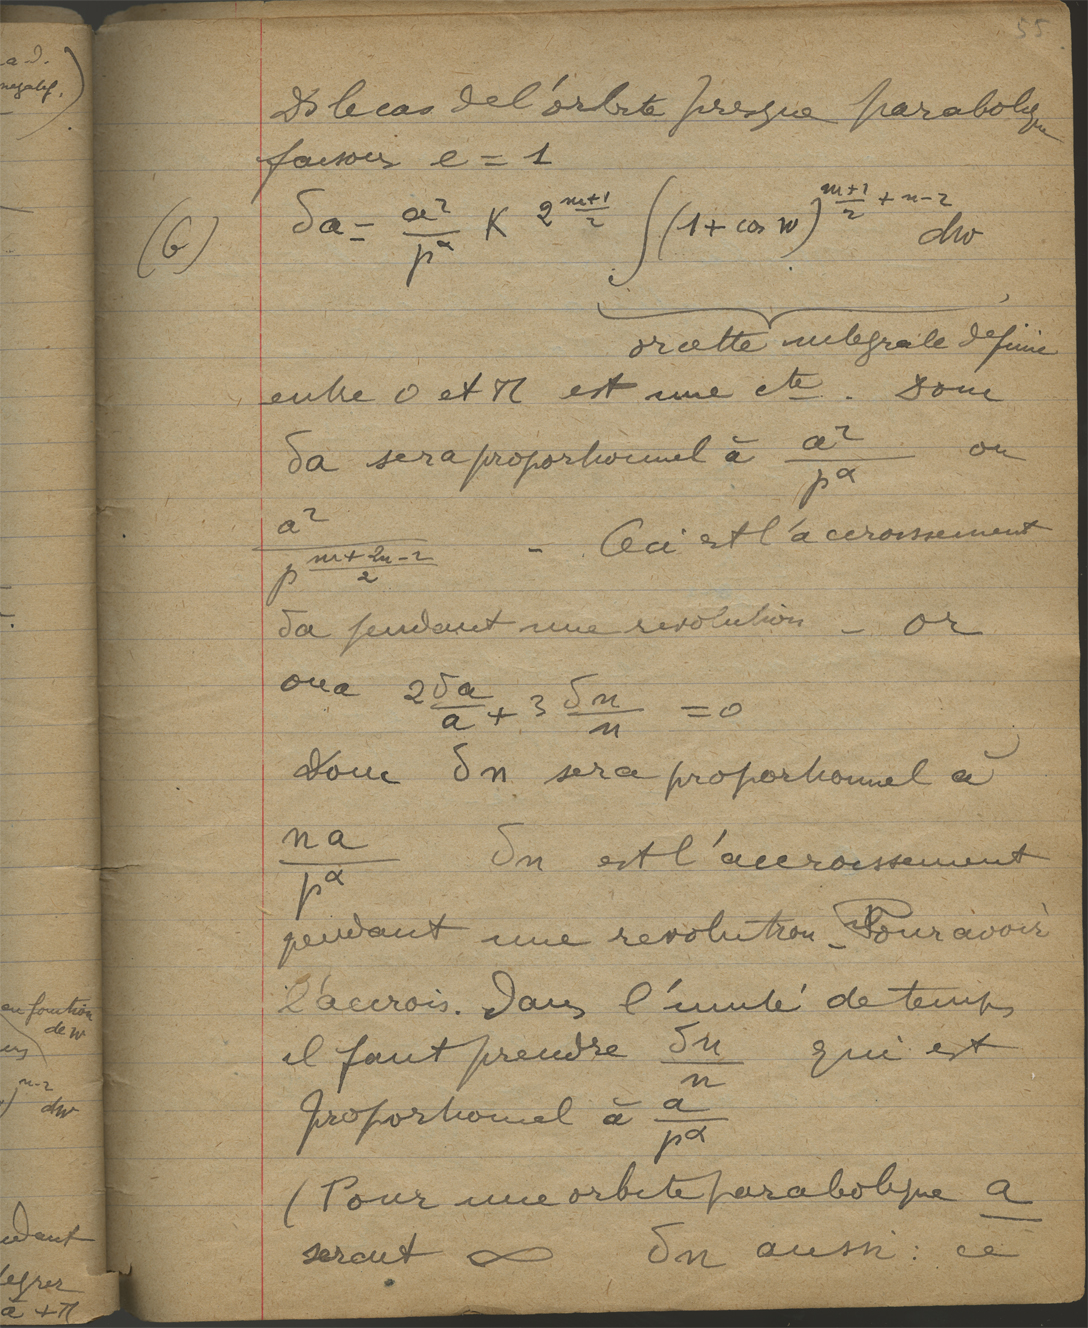 55
a d.
negatif.)
Ds le cas de l'orbite presque parabolique
faisons e = 1
(6) δa = a²/p^α K 2^((m+1)/2) ∫(1 + cos w)^((m+1)/2 + n-2) dw
or cette integrale definie
entre 0 et π est une cte. Donc
δa sera proportionnel à a²/p^α ou
a²/p^((m+2n-2)/2) - Ceci est l'accroissement
δa pendant une revolution - or
on a 2 δa/a + 3 δn/n = 0
Donc δn sera proportionnel à
na/p^α δn est l'accroissement
pendant une revolution - Pour avoir
l'accrois. dans l'unité de temps
il faut prendre δn/n qui est
proportionnel à a/p^α
(Pour une orbite parabolique a
serait ∞ δn aussi : ce
en fonction
de w
)^(n-2) dw
ndant
tegrer
à +π